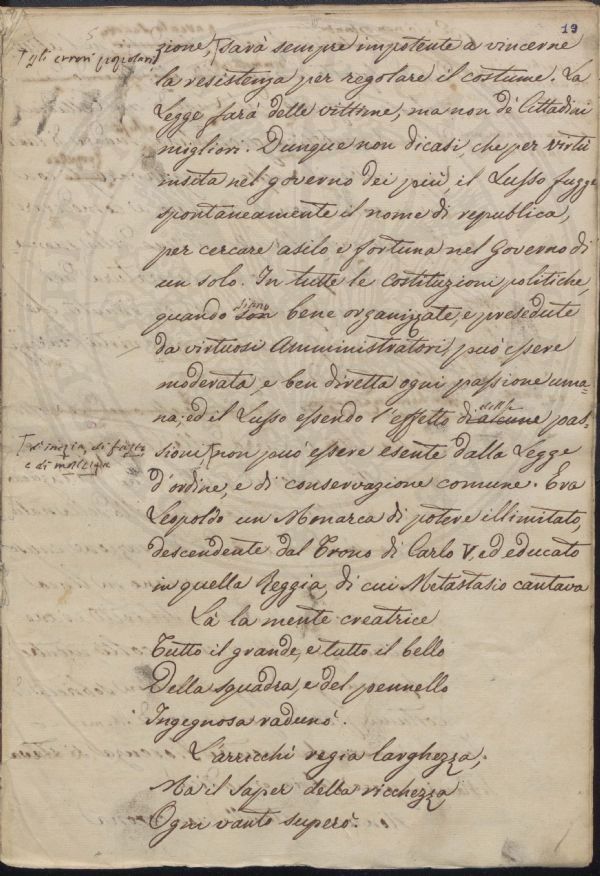 19
⌈gli errori popolari
zione,⌈sarà sempre impotente a vincerne
la resistenza per regolare il costume. La
Legge farà delle vittime, ma non de' Cittadini
migliori. Dunque non dicasi, che per virtù
insita nel governo dei più, il Lusso fugge
spontaneamente il nome di republica,
per cercare asilo e fortuna nel Governo di
un solo. In tutte le costituzioni politiche,
siano
quando son bene organizzate, e presedute
da virtuosi Amministratori, può essere
moderata, e ben diretta ogni passione uma-
delle
na; ed il Lusso essendo l'effetto di alcune pas-
⌈d'inezia, di fasto,
e di mollezza
sioni,⌈non può essere esente dalla Legge
d'ordine, e di conservazione comune. Era
Leopoldo un Monarca di potere illimitato,
descendente dal Trono di Carlo V, ed educato
in quella Reggia, di cui Metastasio cantava
Là la mente creatrice
Tutto il grande, e tutto il bello
Della squadra, e del pennello
Ingegnosa radunò.
L'arricchì regia larghezza;
Ma il saper della ricchezza
Ogni vanto superò.